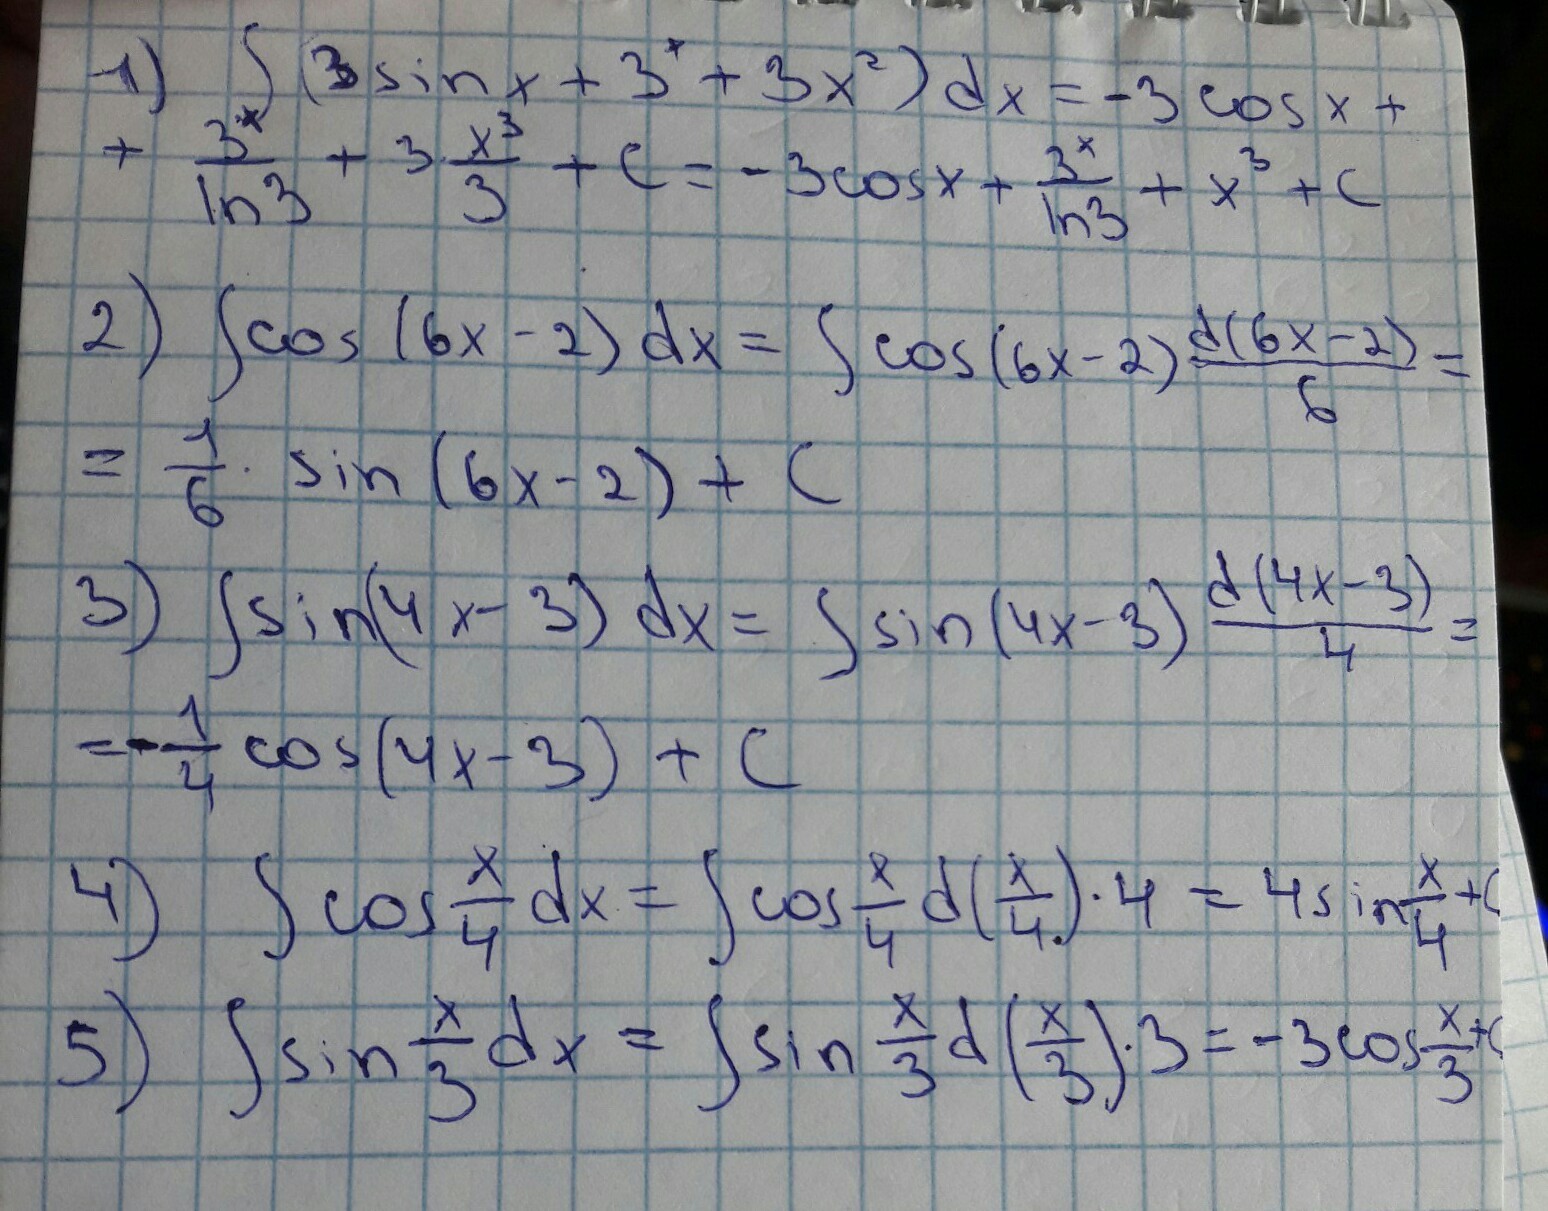 1) ∫(3sinx + 3^x + 3x²)dx = -3cosx +
+ 3^x/ln3 + 3·x³/3 + C = -3cosx + 3^x/ln3 + x³ + C
2) ∫cos(6x-2)dx = ∫cos(6x-2) d(6x-2)/6 =
= 1/6 · sin(6x-2) + C
3) ∫sin(4x-3)dx = ∫sin(4x-3) d(4x-3)/4 =
= -1/4 cos(4x-3) + C
4) ∫cos x/4 dx = ∫cos x/4 d(x/4)·4 = 4sin x/4 + C
5) ∫sin x/3 dx = ∫sin x/3 d(x/3)·3 = -3cos x/3 + C